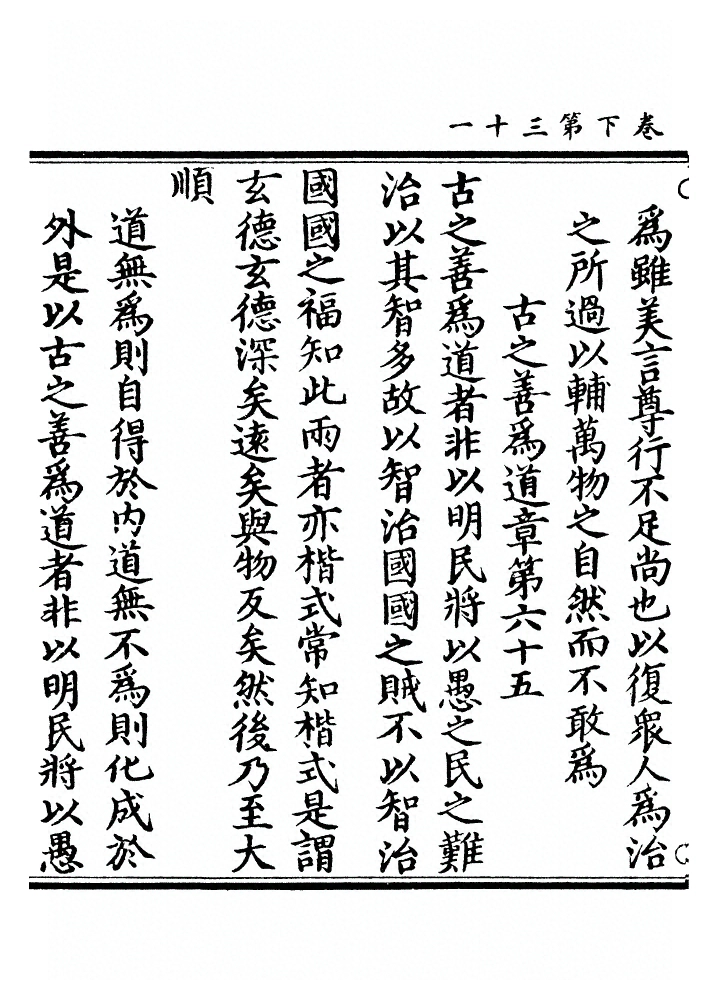 卷下第三十一
爲雖美言尊行不足尚也以復眾人爲治
之所過以輔萬物之自然而不敢爲
古之善爲道章第六十五
古之善爲道者非以明民將以愚之民之難
治以其智多故以智治國國之賊不以智治
國國之福知此兩者亦楷式常知楷式是謂
玄德玄德深矣遠矣與物反矣然後乃至大
順
道無爲則自得於內道無不爲則化成於
外是以古之善爲道者非以明民將以愚